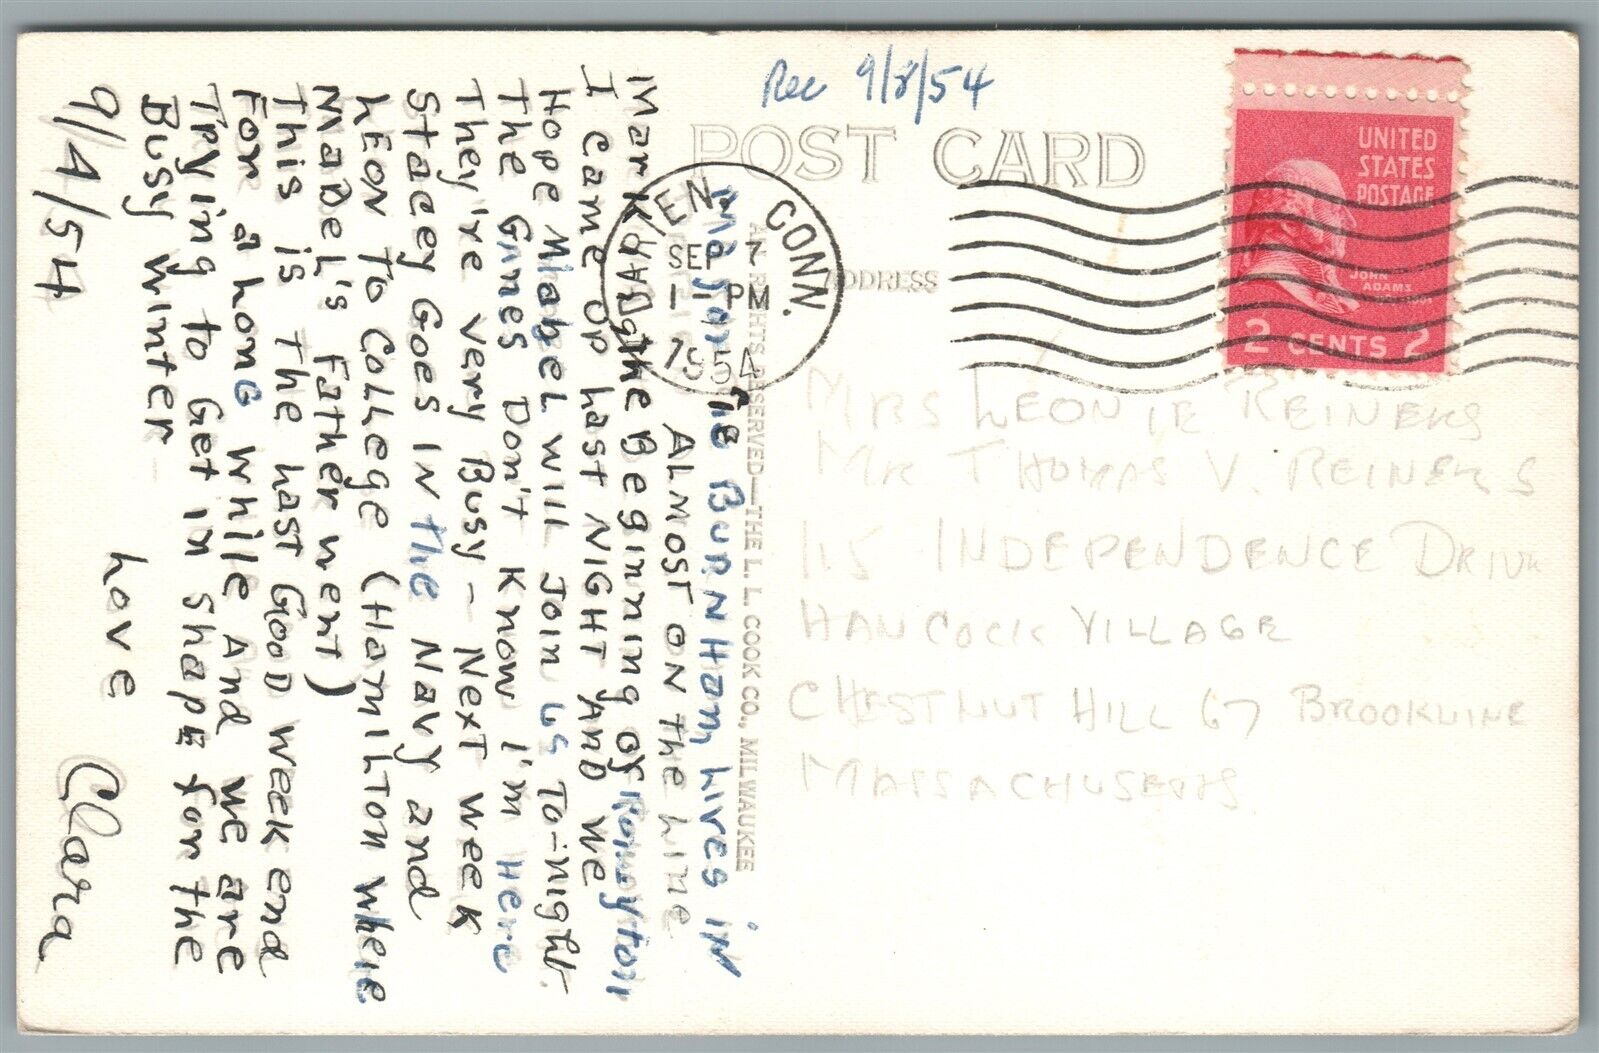 Rec 9/8/54
POST CARD
ADDRESS
CONN.
SEP 7
1 - PM
1954
UNITED
STATES
POSTAGE
JOHN
ADAMS
2 CENTS 2
MRS LEONIE REINERS
MR THOMAS V. REINERS
115 INDEPENDENCE DRIVE
HANCOCK VILLAGE
CHESTNUT HILL 67 BROOKLINE
MASSACHUSETTS
ALL RIGHTS RESERVED—THE L. L. COOK CO., MILWAUKEE
The BURNHam Lives in
ALMOST ON The Line
Mark the Beginning of
I came up Last NIGHT AND We
Hope Mabel will Join us To-night.
The Games Don't Know I'm Here
They're very Busy - Next week
Stacey Goes IN the Navy and
Leon To College (Hamilton where
Mabel's Father went)
This is The Last Good week end
For a Long while And we are
Trying to Get in Shape for the
Busy Winter
Love
Clara
9/4/54